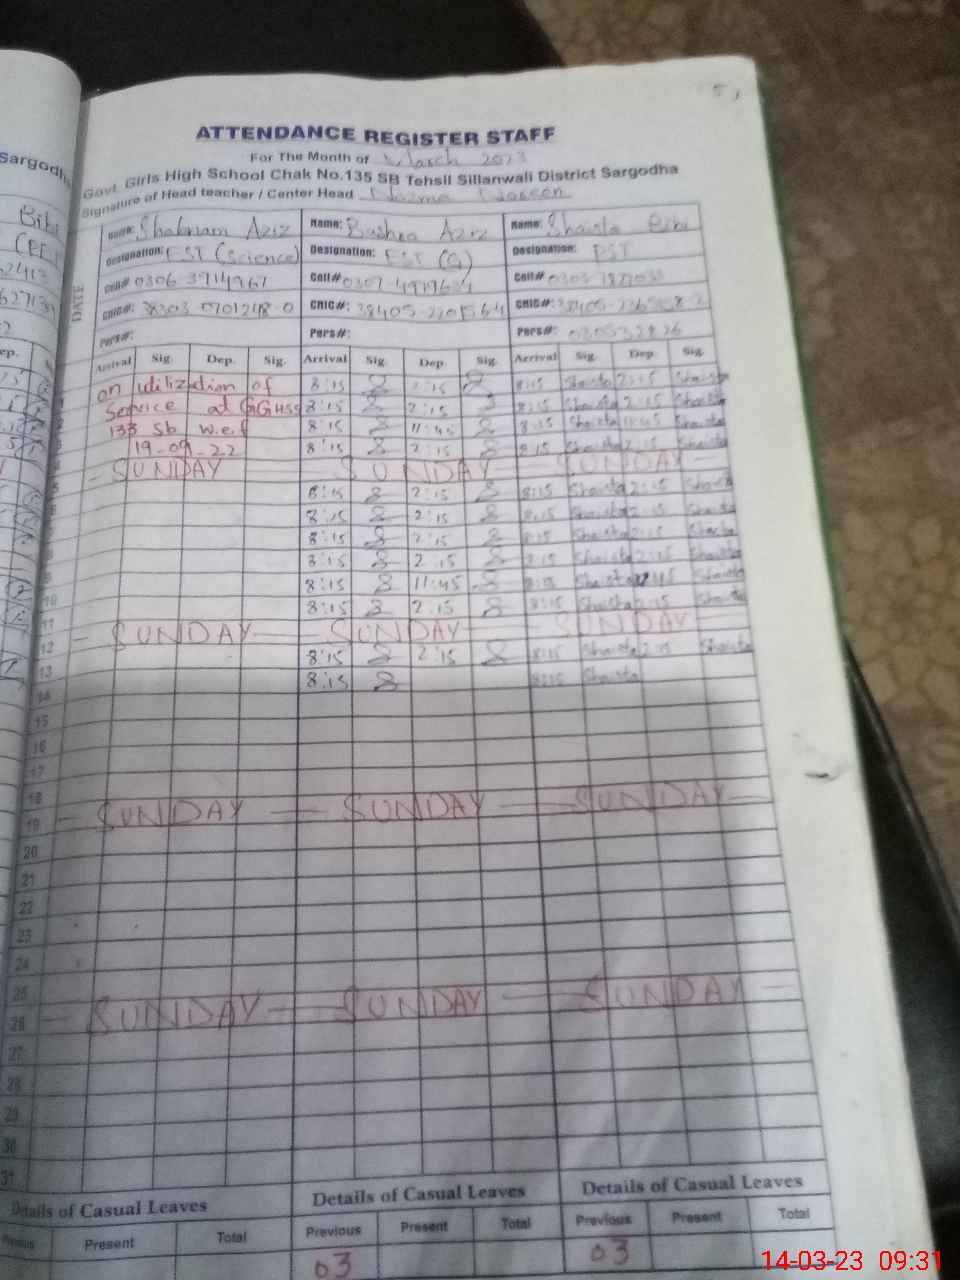 Sargodha
ATTENDANCE REGISTER STAFF
For The Month of March 2023
Govt. Girls High School Chak No.135 SB Tehsil Sillanwali District Sargodha
Signature of Head teacher / Center Head Nazma Nasreen
DATE
Name: Shabnam Aziz Name: Bushra Aziz Name: Shaista Bibi
Designation: EST (Science) Designation: EST (G) Designation: PST
Cell# 0306-3914967 Cell# Cell#
CNIC#: 38303 0701248-0 CNIC#: CNIC#:
Pers#: Pers#: Pers#:
Arrival Sig. Dep. Sig. Arrival Sig. Dep. Sig. Arrival Sig. Dep. Sig.
on utilization of 8:15 2:15 8:15 Shaista 2:15 Shaista
Service at GGHSS 8:15 2:15 8:15 Shaista 2:15 Shaista
133 Sb w.e.f 8:15 11:45 8:15 Shaista 11:45 Shaista
19-09-22 8:15 2:15 8:15 Shaista 2:15 Shaista
SUNDAY SUNDAY SUNDAY
8:15 2:15 8:15 Shaista 2:15 Shaista
8:15 2:15 8:15 Shaista 2:15 Shaista
8:15 2:15 8:15 Shaista 2:15 Shaista
8:15 2:15 8:15 Shaista 2:15 Shaista
8:15 11:45 8:15 Shaista Shaista
10 8:15 2:15 8:15 Shaista 2:15 Shaista
11
12 SUNDAY SUNDAY SUNDAY
13 8:15 2:15 8:15 Shaista 2:15 Shaista
14 8:15 8:15 Shaista
15
16
17
18
19 SUNDAY SUNDAY SUNDAY
20
21
22
23
24
25
26 SUNDAY SUNDAY SUNDAY
27
28
29
30
31
Details of Casual Leaves Details of Casual Leaves Details of Casual Leaves
Present Total Previous Present Total Previous Present Total
03 03
14-03-23 09:31